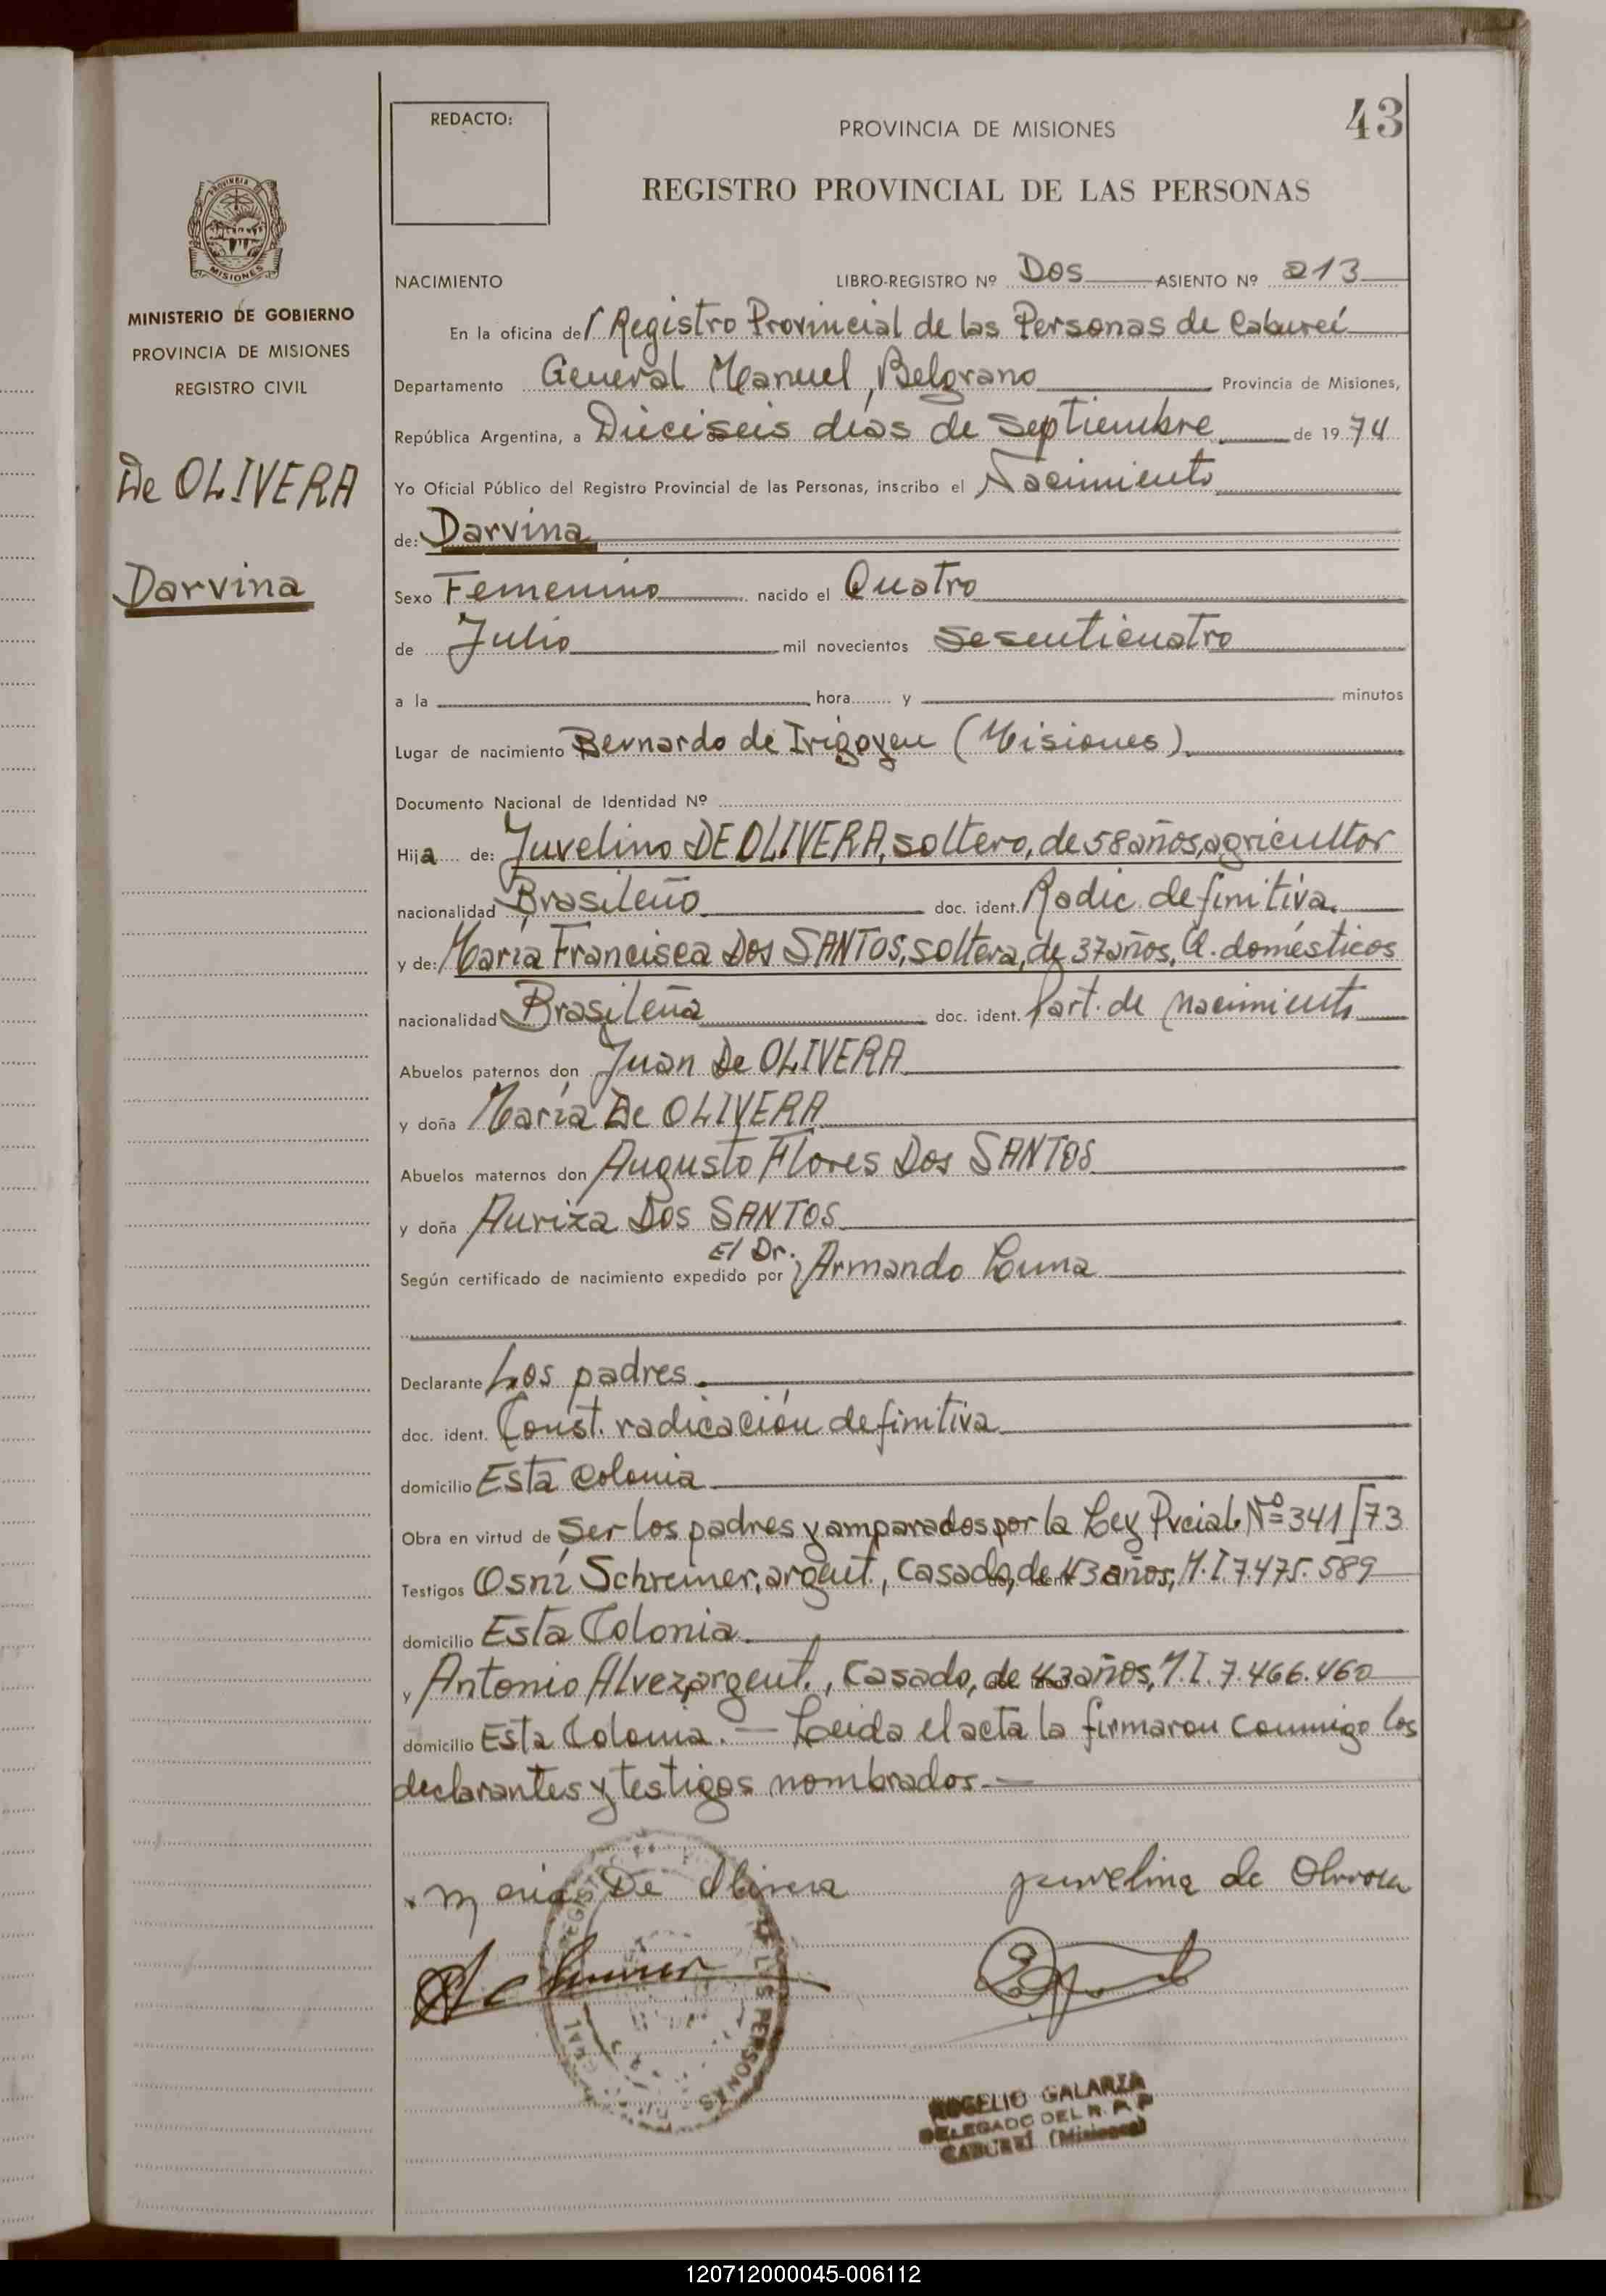 43
REDACTO:
PROVINCIA DE MISIONES
REGISTRO PROVINCIAL DE LAS PERSONAS
PROVINCIA DE
MISIONES
MINISTERIO DE GOBIERNO
PROVINCIA DE MISIONES
REGISTRO CIVIL
De OLIVERA
Darvina
NACIMIENTO LIBRO-REGISTRO Nº Dos ASIENTO Nº 213
En la oficina del Registro Provincial de las Personas de Caburei
Departamento General Manuel Belgrano Provincia de Misiones,
República Argentina, a Dieciseis días de Septiembre de 1974
Yo Oficial Público del Registro Provincial de las Personas, inscribo el Nacimiento
de: Darvina
Sexo Femenino nacido el Cuatro
de Julio mil novecientos Sesenticuatro
a la hora........ y minutos
Lugar de nacimiento Bernardo de Irigoyen (Misiones).
Documento Nacional de Identidad Nº
Hija de: Juvelino DE OLIVERA, soltero, de 58 años, agricultor
nacionalidad Brasileño doc. ident. Radic. definitiva.
y de: María Francisca Dos SANTOS, soltera, de 37 años, Q. domésticos
nacionalidad Brasileña doc. ident. Part. de nacimiento
Abuelos paternos don Juan De OLIVERA
y doña María De OLIVERA
Abuelos maternos don Augusto Flores Dos SANTOS
y doña Auriza Dos SANTOS
Según certificado de nacimiento expedido por El Dr. Armando Luna
Declarante Los padres.
doc. ident. Const. radicación definitiva
domicilio Esta Colonia
Obra en virtud de Ser los padres y amparados por la Ley Pvcial. Nº 341/73
Testigos Osní Schreiner, argent., casado, de 43 años, M.I. 7.475.589
domicilio Esta Colonia.
y Antonio Alvez, argent., casado, de 43 años, M.I. 7.466.460
domicilio Esta Colonia. — Leida el acta la firmaron conmigo los
declarantes y testigos nombrados. —
maria De Olivera juvelino de Olivera
ROGELIO GALARZA
DELEGADO DEL R. P. P
CABUREÍ (Misiones)
120712000045-006112